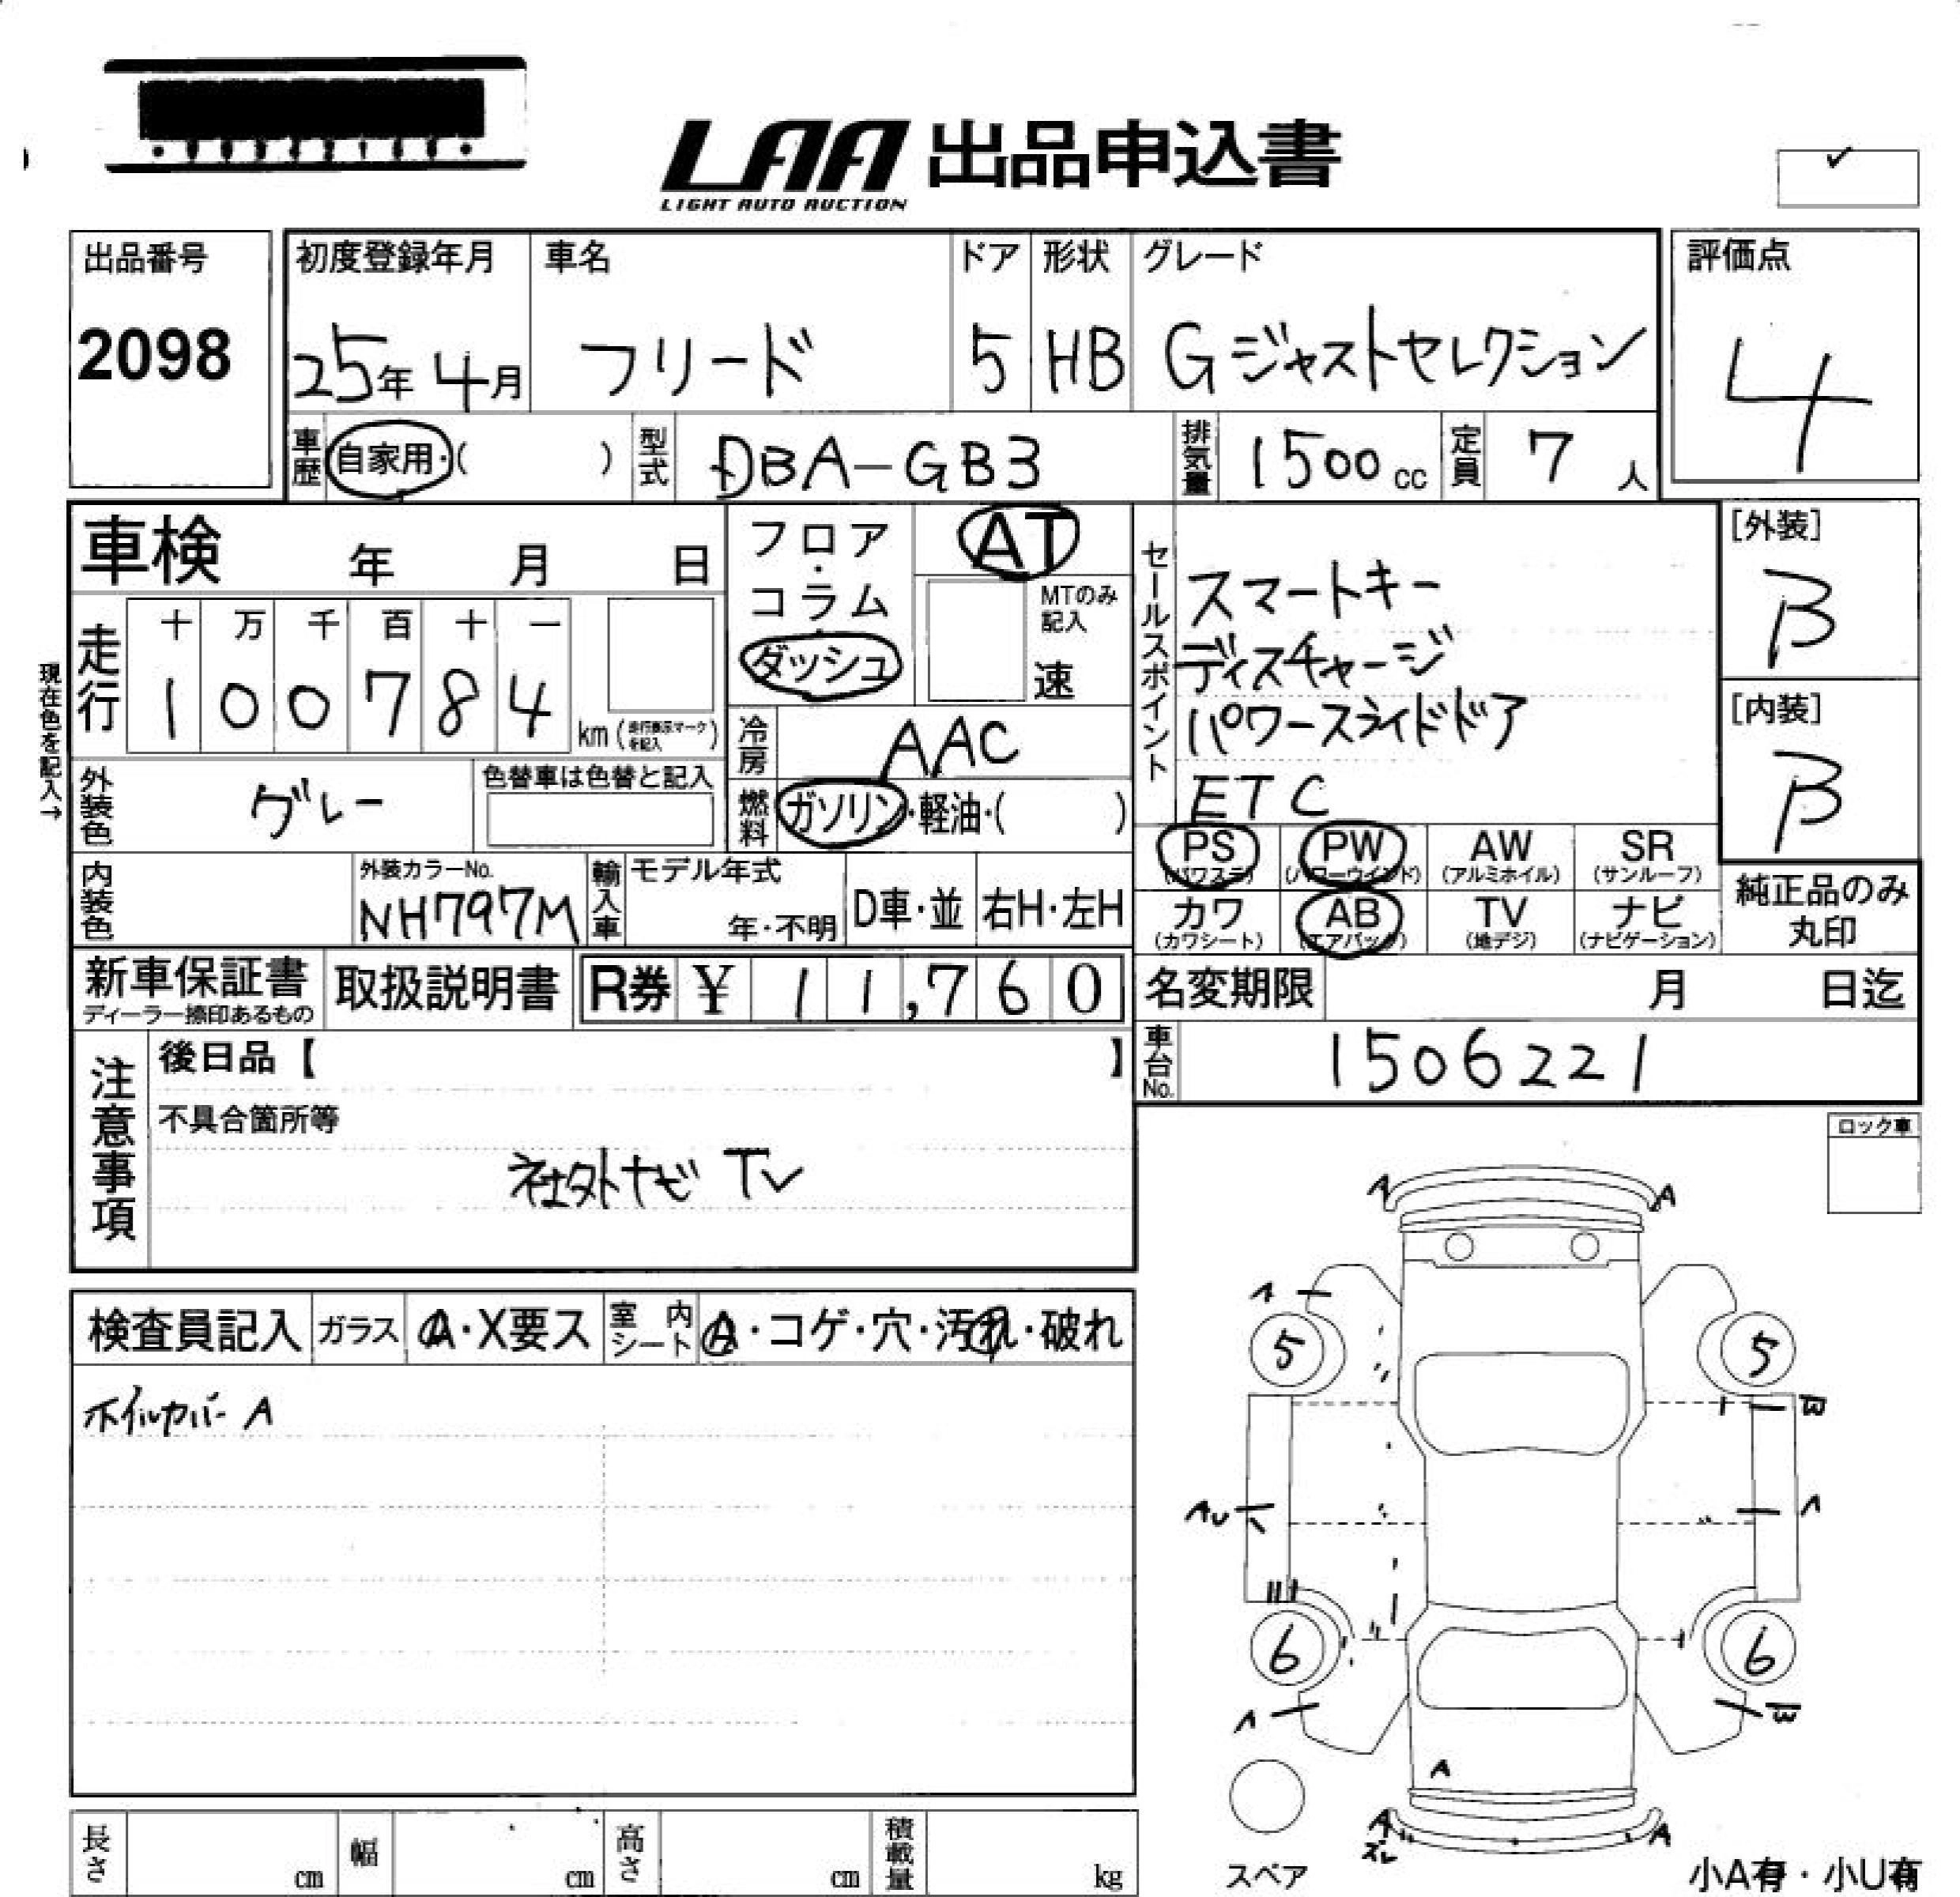 LAA 出品申込書
LIGHT AUTO AUCTION
出品番号
2098
初度登録年月 車名 ドア 形状 グレード
25年 4月 フリード 5 HB Gジャストセレクション
車歴 自家用・( ) 型式 DBA-GB3 排気量 1500cc 定員 7人
評価点
4
車検 年 月 日
走行 十 万 千 百 十 一
1 0 0 7 8 4 km (走行表示マークを記入)
現在色を記入→
外装色 グレー 色替車は色替と記入
内装色 外装カラーNo. NH797M 輸入車 モデル年式 年・不明 D車・並 右H・左H
フロア・コラム・ダッシュ
AT
MTのみ記入
速
冷房 AAC
燃料 ガソリン・軽油・( )
セールスポイント
スマートキー
ディスチャージ
パワースライドドア
ETC
[外装]
B
[内装]
B
PS (パワステ) PW (パワーウインド) AW (アルミホイル) SR (サンルーフ)
カワ (カワシート) AB (エアバック) TV (地デジ) ナビ (ナビゲーション)
純正品のみ
丸印
新車保証書
ディーラー捺印あるもの
取扱説明書 R券 ¥ 11,760
名変期限 月 日迄
車台No. 1506221
注意事項
後日品【 】
不具合箇所等
社外ナビ TV
ロック車
検査員記入 ガラス A・X要ス 室内シート A・コゲ・穴・汚れ・破れ
ホイルカバー A
A A
A
5 5
W
AU A
6 6
A W
A
A A
ズレ
スペア
小A有・小U有
長さ cm 幅 cm 高さ cm 積載量 kg